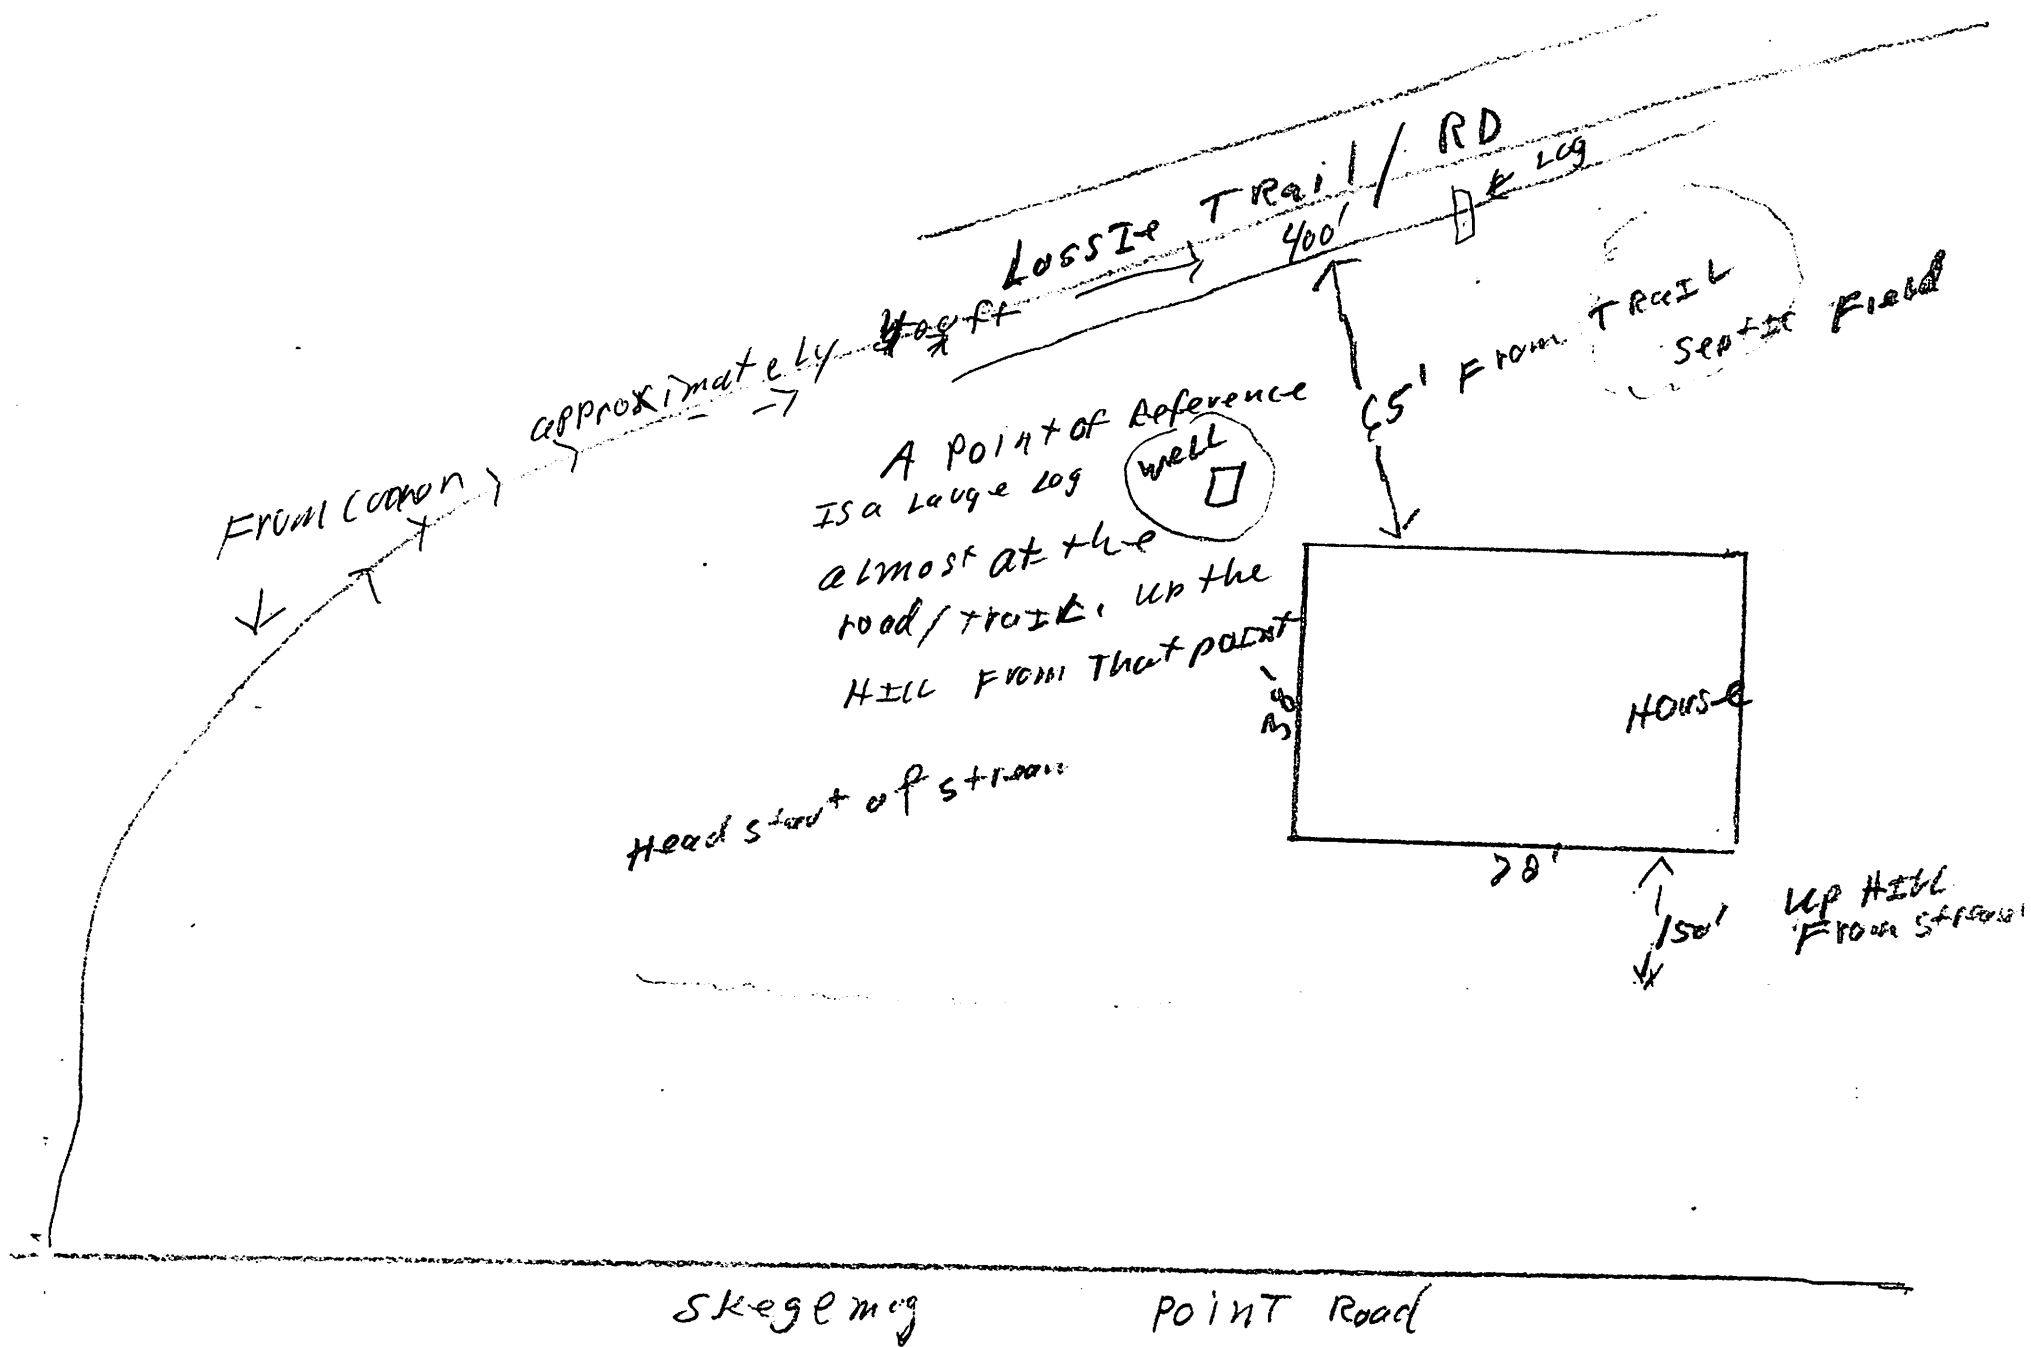 LossIe TRail / RD
400'
Log
From
approximately
65' From TRaIL
Septic Field
A Point of Reference
Is a Large Log
well
almost at the
road/traIL. Up the
HILL From That point
38'
House
Head start of stream
28'
150'
Up HILL
From stream
Skegemog Point Road